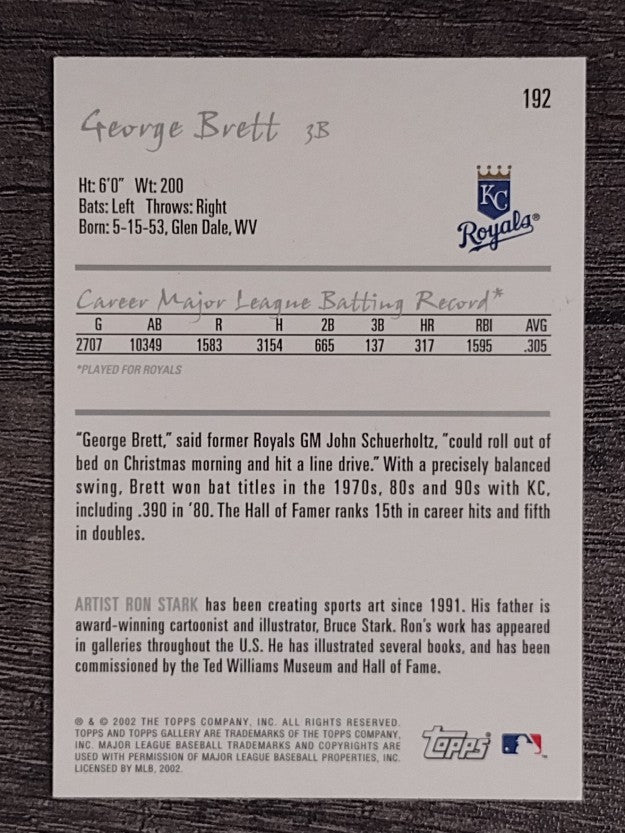 192
George Brett 3B
Ht: 6'0" Wt: 200
Bats: Left Throws: Right
Born: 5-15-53, Glen Dale, WV
KC
Royals®
Career Major League Batting Record*
G AB R H 2B 3B HR RBI AVG
2707 10349 1583 3154 665 137 317 1595 .305
*PLAYED FOR ROYALS
"George Brett," said former Royals GM John Schuerholtz, "could roll out of
bed on Christmas morning and hit a line drive." With a precisely balanced
swing, Brett won bat titles in the 1970s, 80s and 90s with KC,
including .390 in '80. The Hall of Famer ranks 15th in career hits and fifth
in doubles.
ARTIST RON STARK has been creating sports art since 1991. His father is
award-winning cartoonist and illustrator, Bruce Stark. Ron's work has appeared
in galleries throughout the U.S. He has illustrated several books, and has been
commissioned by the Ted Williams Museum and Hall of Fame.
® & © 2002 THE TOPPS COMPANY, INC. ALL RIGHTS RESERVED.
TOPPS AND TOPPS GALLERY ARE TRADEMARKS OF THE TOPPS COMPANY,
INC. MAJOR LEAGUE BASEBALL TRADEMARKS AND COPYRIGHTS ARE
USED WITH PERMISSION OF MAJOR LEAGUE BASEBALL PROPERTIES, INC.
LICENSED BY MLB, 2002.
Topps®